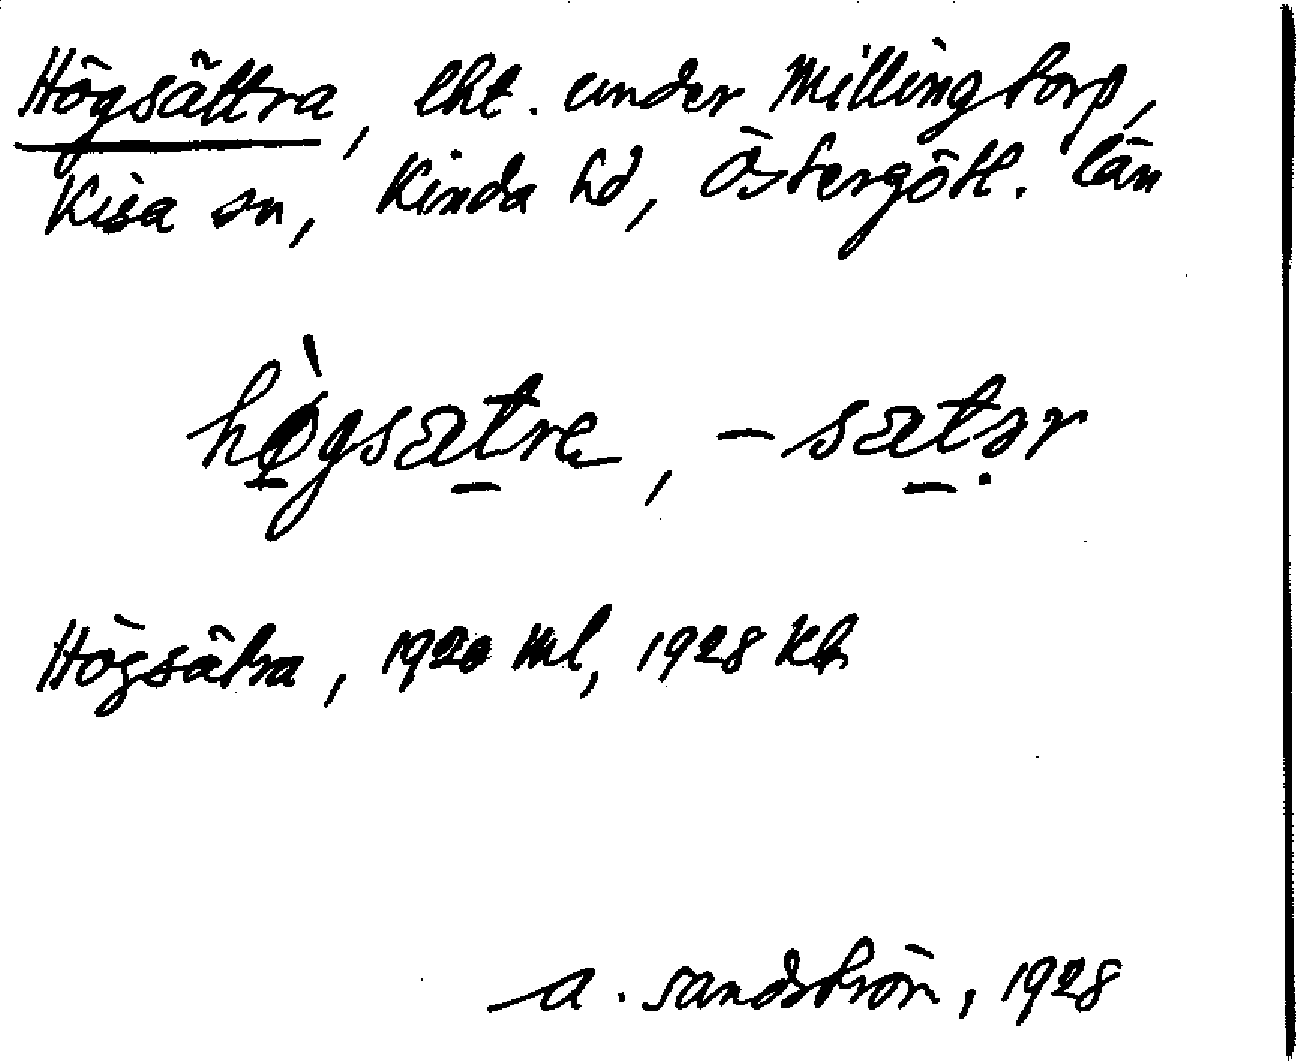 Högsättra, lht. under Millingtorp,
Kisa sn, Kinda hd, Östergötl. län
hø̀gsætra, -sætər
Högsätra, 1920 Ml, 1928 Kb
A. Sandström, 1928